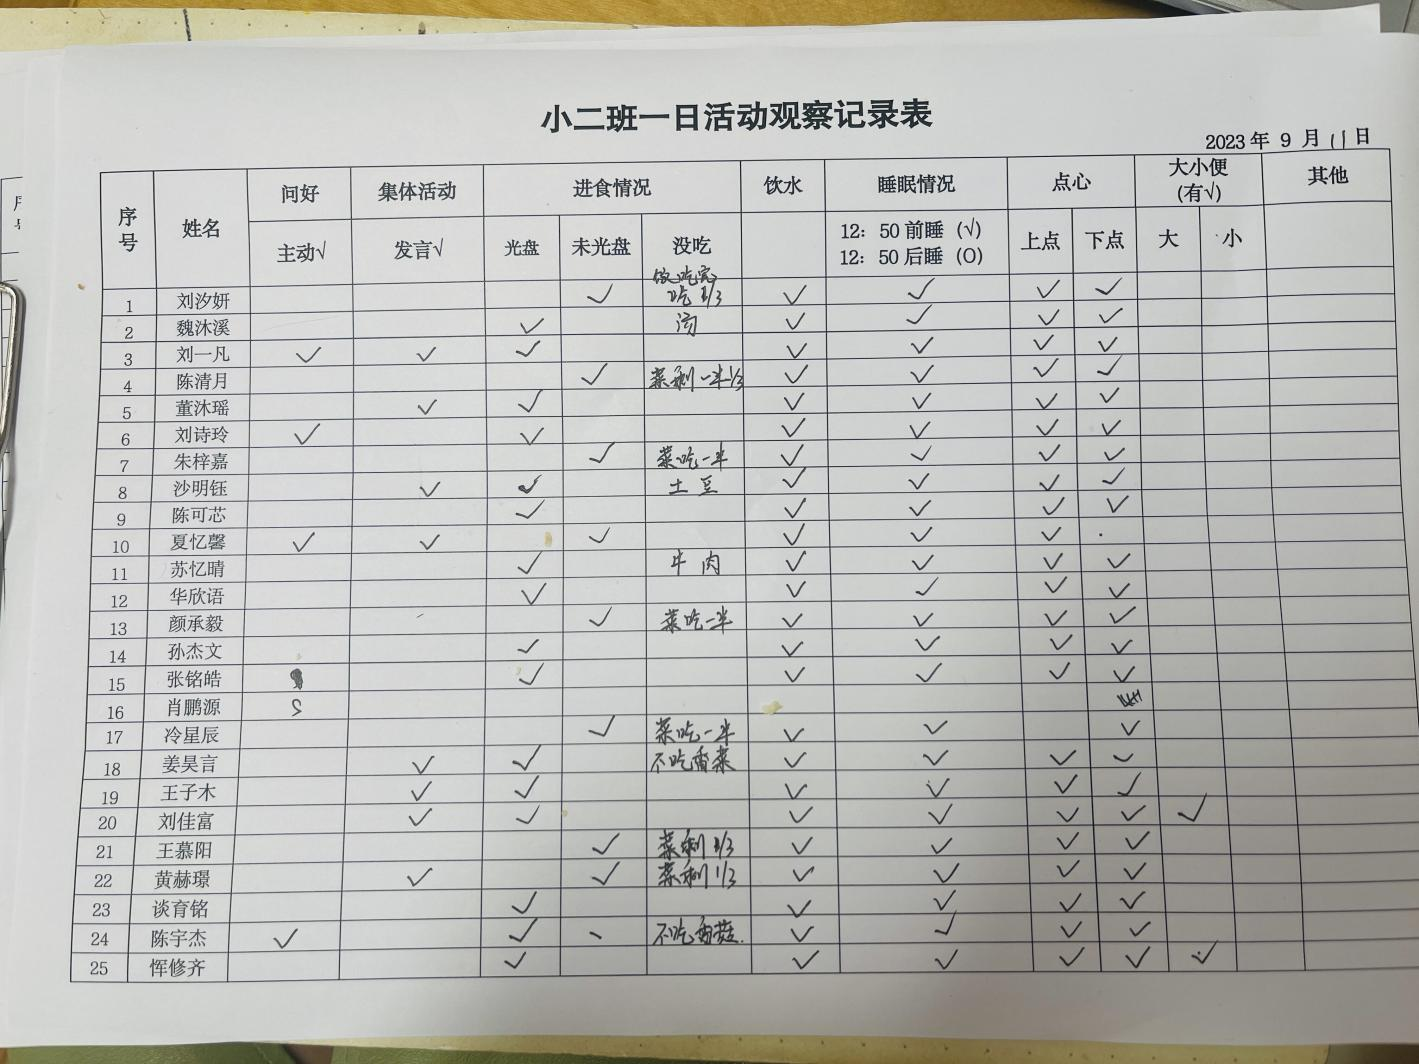 小二班一日活动观察记录表
2023年 9 月 11 日
序号 姓名 问好 集体活动 进食情况 饮水 睡眠情况 点心 大小便(有√) 其他
主动√ 发言√ 光盘 未光盘 没吃 12:50前睡(√) 12:50后睡(O) 上点 下点 大 小
1 刘汐妍 √ 饭吃完 吃 /3 √ √ √ √
2 魏沐溪 √ 汤 √ √ √ √
3 刘一凡 √ √ √ √ √ √ √
4 陈清月 √ 菜剩一半 1/3 √ √ √ √
5 董沐瑶 √ √ √ √ √ √
6 刘诗玲 √ √ √ √ √ √
7 朱梓嘉 √ 菜吃一半 √ √ √ √
8 沙明钰 √ √ 土豆 √ √ √ √
9 陈可芯 √ √ √ √ √
10 夏忆馨 √ √ √ √ √ √
11 苏忆晴 √ 牛肉 √ √ √ √
12 华欣语 √ √ √ √ √
13 颜承毅 √ 菜吃一半 √ √ √ √
14 孙杰文 √ √ √ √ √
15 张铭皓 √ √ √ √ √
16 肖鹏源
17 冷星辰 √ 菜吃一半 √ √ √
18 姜昊言 √ √ 不吃香菜 √ √ √ √
19 王子木 √ √ √ √ √ √
20 刘佳富 √ √ √ √ √ √ √
21 王慕阳 √ 菜剩 /3 √ √ √ √
22 黄赫璟 √ √ 菜剩 1/3 √ √ √ √
23 谈育铭 √ √ √ √ √
24 陈宇杰 √ √ 不吃香菇. √ √ √ √
25 恽修齐 √ √ √ √ √ √